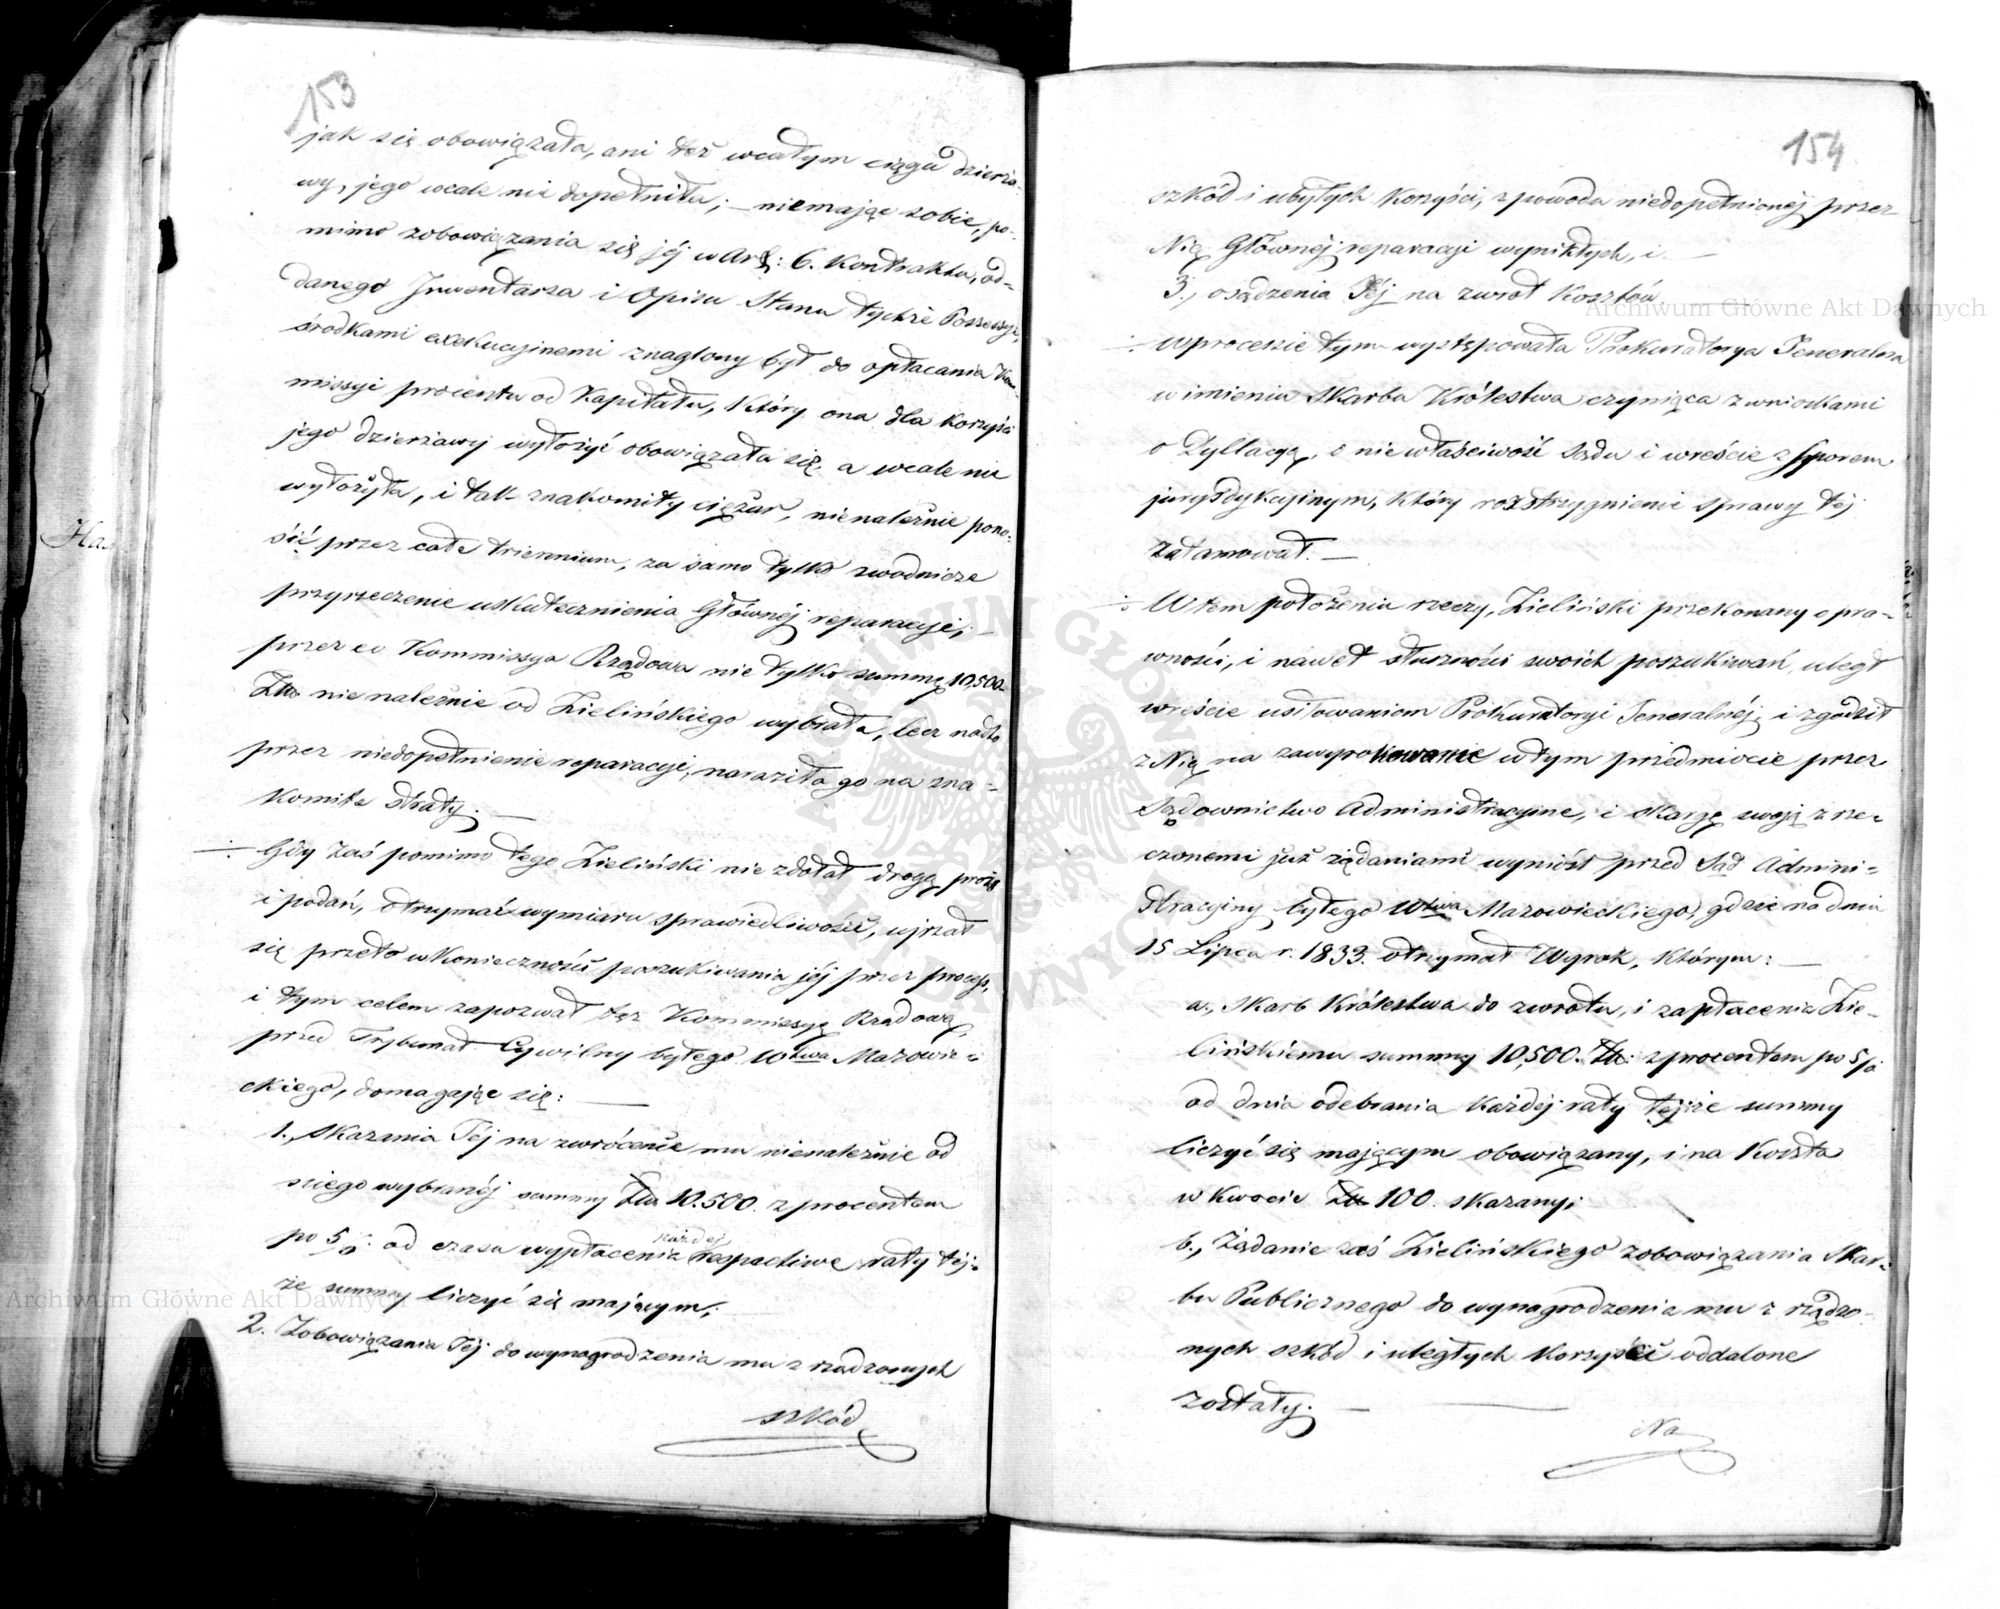 153
jak się obowiązała, ani też wcałym ciągu dzierża-
wy, jego wcale nie dopełniła; — niemając sobie, po-
mimo zobowiązania się jéj w Art: 6. Kontraktu, od-
danego Inwentarza i Opisu Stanu tychże Possessyi,
środkami exekucyinemi znaglony był do opłacania Kom-
missyi procentu od Kapitału, który ona dla korzyści
jego dzierżawy wyłożyć obowiązała się, a wcale nie
wyłożyła, i tak znakomity ciężar, nienależnie pono-
sić przez całe triennium, za samo tylko zwodnicze
przyrzeczenie uskutecznienia Głównéj reparacyi; —
przez co Kommissya Rządowa nie tylko summę 10,500
Złt nienależnie od Zielińskiego wybrała, lecz nadto
przez niedopełnienie reparacyi, naraziła go na zna-
komite straty. —
Gdy zaś pomimo tego Zieliński nie zdołał drogą prośb
i podań, otrzymać wymiaru sprawiedliwości, ujrzał
się przeto w Konieczności poszukiwania jéj przez process,
i tym celem zapozwał też Kommissyę Rządową,
przed Trybunał Cywilny byłego Wtwa Mazowie-
ckiego, domagając się: —
1., Skazania Téj na zwrócenie mu nienależnie od
niego wybranéj summy Złt 10.500. z procentem
po 5/0. od czasu wypłacenia każdej respective raty téj-
że summy liczyć się mającym; —
2. Zobowiązania Téj do wynagrodzenia mu zrządzonych
szkód
154
szkód i ubyłych korzyści, z powodu niedopełnionéj przez
Nię Głównéj reparacyi wynikłych, i —
3., osądzenia Jéj na zwrot Kosztów. —
W procesie tym występowała Prokuratorya Generalna
w imieniu Skarbu Królestwa czyniąca z wnioskami
o Dyllacyą, o niewłaściwość Sądu i wreście z sporem
jurysdykcyinym, który rozstrzygnienie sprawy téj
zatamował. —
W tem położeniu rzeczy, Zieliński przekonany o pra-
wności, i nawet słuszności swoich poszukiwań, uległ
wreście usiłowaniom Prokuratoryi Generalnéj, i zgodził
z Nią na zawyrokowanie w tym przedmiocie przez
Sądownictwo Administracyjne, i skargę swoją z rze-
czonemi już żądaniami wyniósł przed Sąd Admini-
stracyjny byłego Wtwa Mazowieckiego, gdzie na dniu
15 Lipca r. 1833. otrzymał Wyrok, którym: —
a., Skarb Królestwa do zwrotu, i zapłacenia Zie-
lińskiemu summy 10,500. Złt: z procentem po 5/0
od dnia odebrania każdéj raty téjże summy
liczyć się mającym obowiązany, i na koszta
w kwocie Złt 100. skazany;
b., Żądanie zaś Zielińskiego zobowiązania Skar-
bu Publicznego do wynagrodzenia mu zrządzo-
nych szkód i uległych korzyści oddalone
zostały. —
Na
Archiwum Główne Akt Dawnych
Archiwum Główne Akt Dawnych
ARCHIWUM GŁÓWNE AKT DAWNYCH